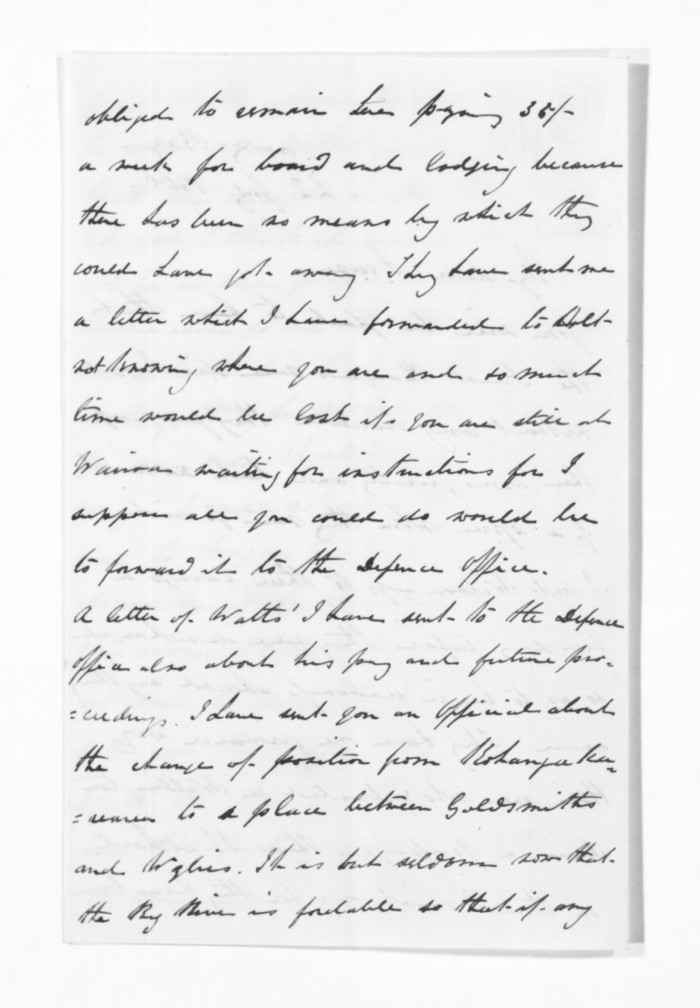 obliged to remain here paying 35/-
a week for board and lodging because
there has been no means by which they
could have got away. They have sent me
a letter which I have forwarded to Holt
not knowing where you are and so much
time would be lost if you are still at
Wairoa waiting for instructions for I
suppose all you could do would be
to forward it to the Defence Office.
A letter of Watts' I have sent to the Defence
Office also about his pay and future pro=
=ceedings. I have sent you an Official about
the change of position from Kohangaka=
=reareu to a place between Goldsmiths
and Wylies. It is but seldom now that
the Big River is fordable so that if any